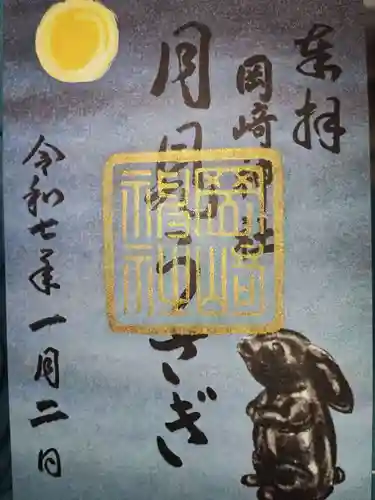 奉拝
岡崎神社
月見うさぎ
岡崎
神社
令和七年一月二日